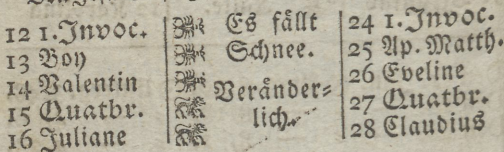 12 1.Invoc.
13 Boy
14 Valentin
15 Quatbr.
16 Juliane
Es fällt
Schnee.
Veränder=
lich.
24 1.Invoc.
25 Ap. Matth.
26 Eveline
27 Quatbr.
28 Claudius